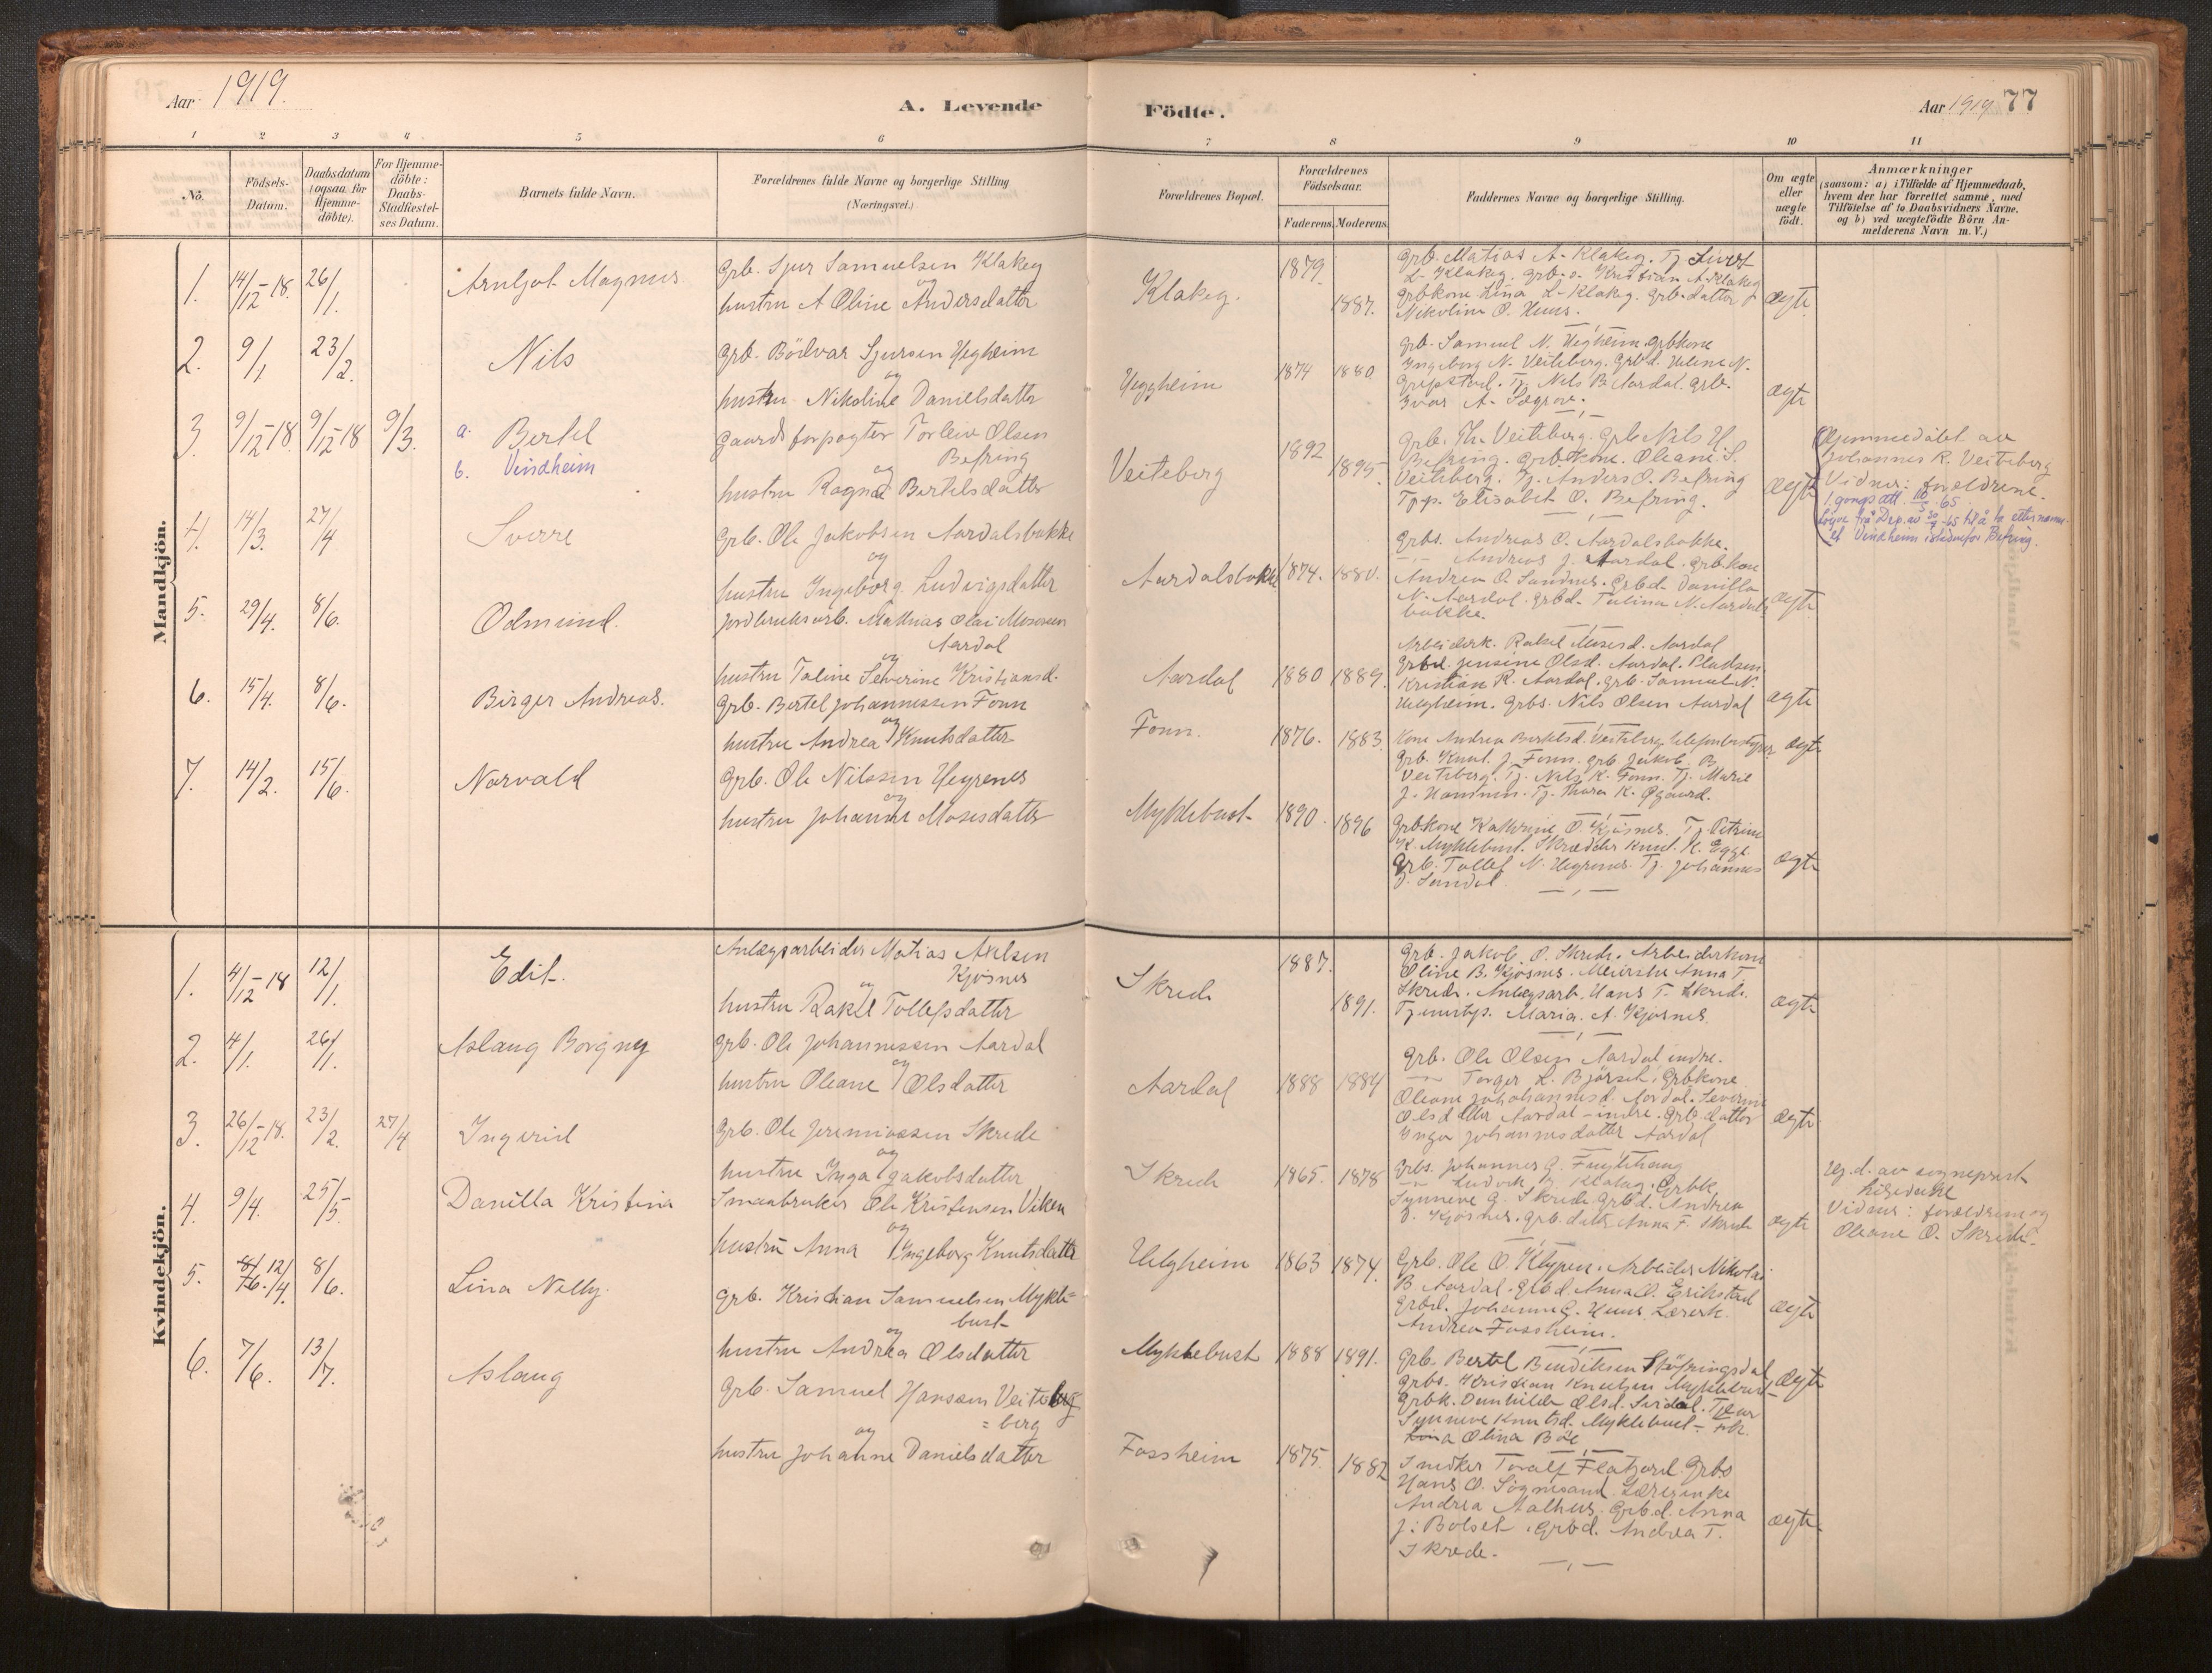 Aar 1919.
A. Levende
Födte.
Aar 1919
77
1 2 3 4 5 6 7 8 9 10 11
No.
Födsels-Datum.
Daabsdatum (ogsaa for Hjemme-döbte).
For Hjemme-döbte: Daabs-Stadfæstel-ses Datum.
Barnets fulde Navn.
Forældrenes fulde Navne og borgerlige Stilling
(Næringsvei.)
Forældrenes Bopæl.
Forældrenes Födselsaar.
Faderens.
Moderens.
Faddernes Navne og borgerlige Stilling.
Om ægte eller uægte födt.
Anmærkninger
(saasom: a) i Tilfælde af Hjemmedaab,
hvem der har forrettet samme, med
Tilföielse af to Daabsvidners Navne,
og b) ved uægtefödte Börn An-
melderens Navn m. V.)
Mandkjön.
1. 14/12-18. 26/1. Arnljot Magnus
Grb. Sjur Samuelsen Klakeg
og
hustru A Oline Andersdatter
Klakeg. 1879 1887.
Grb. Matias A. Klakeg. Tj Sivert
L. Klakeg. Grb.s. Kristian A. Klakeg
Grbkone Lina L. Klakeg. Grb.datter
Nikolina O. Huus.
ægte
2. 9/1 23/2. Nils
Grb. Bödvar Sjursen Hegheim
og
hustru Nikoline Danielsdatter
Heggheim 1874 1880
Grb. Samuel N. Hegheim. Grbkone
Ingeborg N. Veiteberg. Grbd. Helene N.
Tj. Nils B. Aardal. Grb.
Ivar A. Søgrov.
ægte
3 9/12-18 9/12-18 9/3. a. Bertel
b. Vindheim
Gaardsforpagter Torleiv Olsen
Befring
og
hustru Ragna Bertelsdatter
Veiteberg 1892 1895
Grb. Veiteberg. Grb Nils H.
Befring. Grbkone. Oleane S.
Veiteberg. Tj. Anders O. Befring
Tjp. Elisabet O. Befring.
ægte
Hjemmedöbt av
Johannes R. Veiteberg
Vidner: foreldrene.
4. 14/3. 27/4 Sverre
Grb. Ole Jakobsen Aardalsbakke
og
hustru Ingeborg Ludvigsdatter
Aardalsbakke 1874. 1880.
Grbs. Andreas O. Aardalsbakke.
Andreas J. Aardal. Grbkone
Andrea O. Sandnes. Grbd. Danilla
N. Aardal. Grbd. Talina N. Aardals
bakke.
ægte
5. 29/4. 8/6. Odmund.
Jordbruksarb. Mathias Olai Mosesen
Aardal
og
hustru Taline Severine Kristiansd.
Aardal 1880 1889.
Arbeiderk. Rakel Mosesd. Aardal
Grbd. Jensine Olsd. Aardal. Pladsm.
Kristian R. Aardal. Grb. Samuel N.
Helgheim. Grbs. Nils Olsen Aardal
ægte
6. 15/4. 8/6. Birger Andreas.
Grb. Bertel Johannessen Fonn
og
hustru Andrea Knutsdatter
Fonn. 1876. 1883.
Kone Andrea Bertelsd. Veiteberg telefonbestyrer
Grb. Knut J. Fonn. Grb Jakob B
Veiteberg. Tj. Nils K. Fonn. Tj. Marie
J. Hammer. Tj. Thora K. Øgaard.
ægte
7. 14/2. 15/6. Norvald
Grb. Ole Nilssen Hegrenes
og
hustru Johanne Mosesdatter
Myklebust 1890. 1896
Grbkone Kathrine O. Kjösnes. Tj. Petrine
K. Myklebust. Skrædder Knut H. Egge
Grb. Tollef N. Hegrenes. Tj. Johannes
Sandal
ægte
Kvindekjön.
1. 4/12-18 12/1. Edit.
Anlægsarbeider Matias Axelsen
Kjösnes
og
hustru Rakel Tollefsdatter
Skrede 1887. 1891.
Grb. Jakob O. Skrede. Arbeiderkone
Oline B. Kjösnes. Meierske Anna T.
Skrede. Anlægsarb. Hans T. Skrede.
Maria A. Kjösnes.
ægte
2. 4/1. 26/1. Aslaug Borgny
Grb. Ole Johannessen Aardal
og
hustru Oleane Olsdatter
Aardal 1888 1884
Grb. Ole Olsen Aardal indre.
Torger L. Björset. Grbkone
Oleane Johannesd. Aardal. Severine
Olsdatter Aardal-indre. Grb.datter
Inga Johannesdatter Aardal
ægte
3. 26/12-18. 23/2. 27/4 Ingerid
Grb. Ole Jeremiassen Skrede
og
hustru Inga Jakobsdatter
Skrede 1865. 1878
Grbs. Johannes G.
Ludvik Klakeg. Grbk
Synneve G. Skrede. Grbd. Andrea
Kjösnes. Grb.datter Anna F. Skrede
ægte
Hj.d. av sogneprest
Vidner: foreldrene og
Oleane O. Skrede.
4. 9/4. 25/5. Danilla Kristina
Smaabruker Ole Kristensen Viken
og
hustru Anna Ingeborg Knutsdatter
Helgheim 1863 1874.
Grb. Ole O. Klypen. Arbeider Nikolai
B Aardal. Grbd. Anna O. Erikstad
Grbd. Johanne G. Huus. Lærerk.
Andrea Fossheim.
ægte
5. 12/4. 8/6. Lina Nelly.
Grb. Kristian Samuelsen Mykle-
bust
og
hustru Andrea Olsdatter
Myklebust 1888 1891.
Grb. Bertel Bendiksen Stöfringsdal
Grbs. Kristian Knutsen Myklebust
Grbk. Gunhilda Olsd. Sardal.
Synneve Knutsd. Myklebust
Olina Böe
ægte
6. 7/6. 13/7. Aslaug
Grb. Samuel Hanssen Veite
=berg
og
hustru Johanne Danielsdatter
Fossheim 1875. 1882
Snedker Toralf Flatjord. Grbs
Hans O. Sögnesand. Lærerinke
Andrea Aalhus. Grb.d. Anna
J. Bolset. Grbd. Andrea T.
Skrede.
ægte